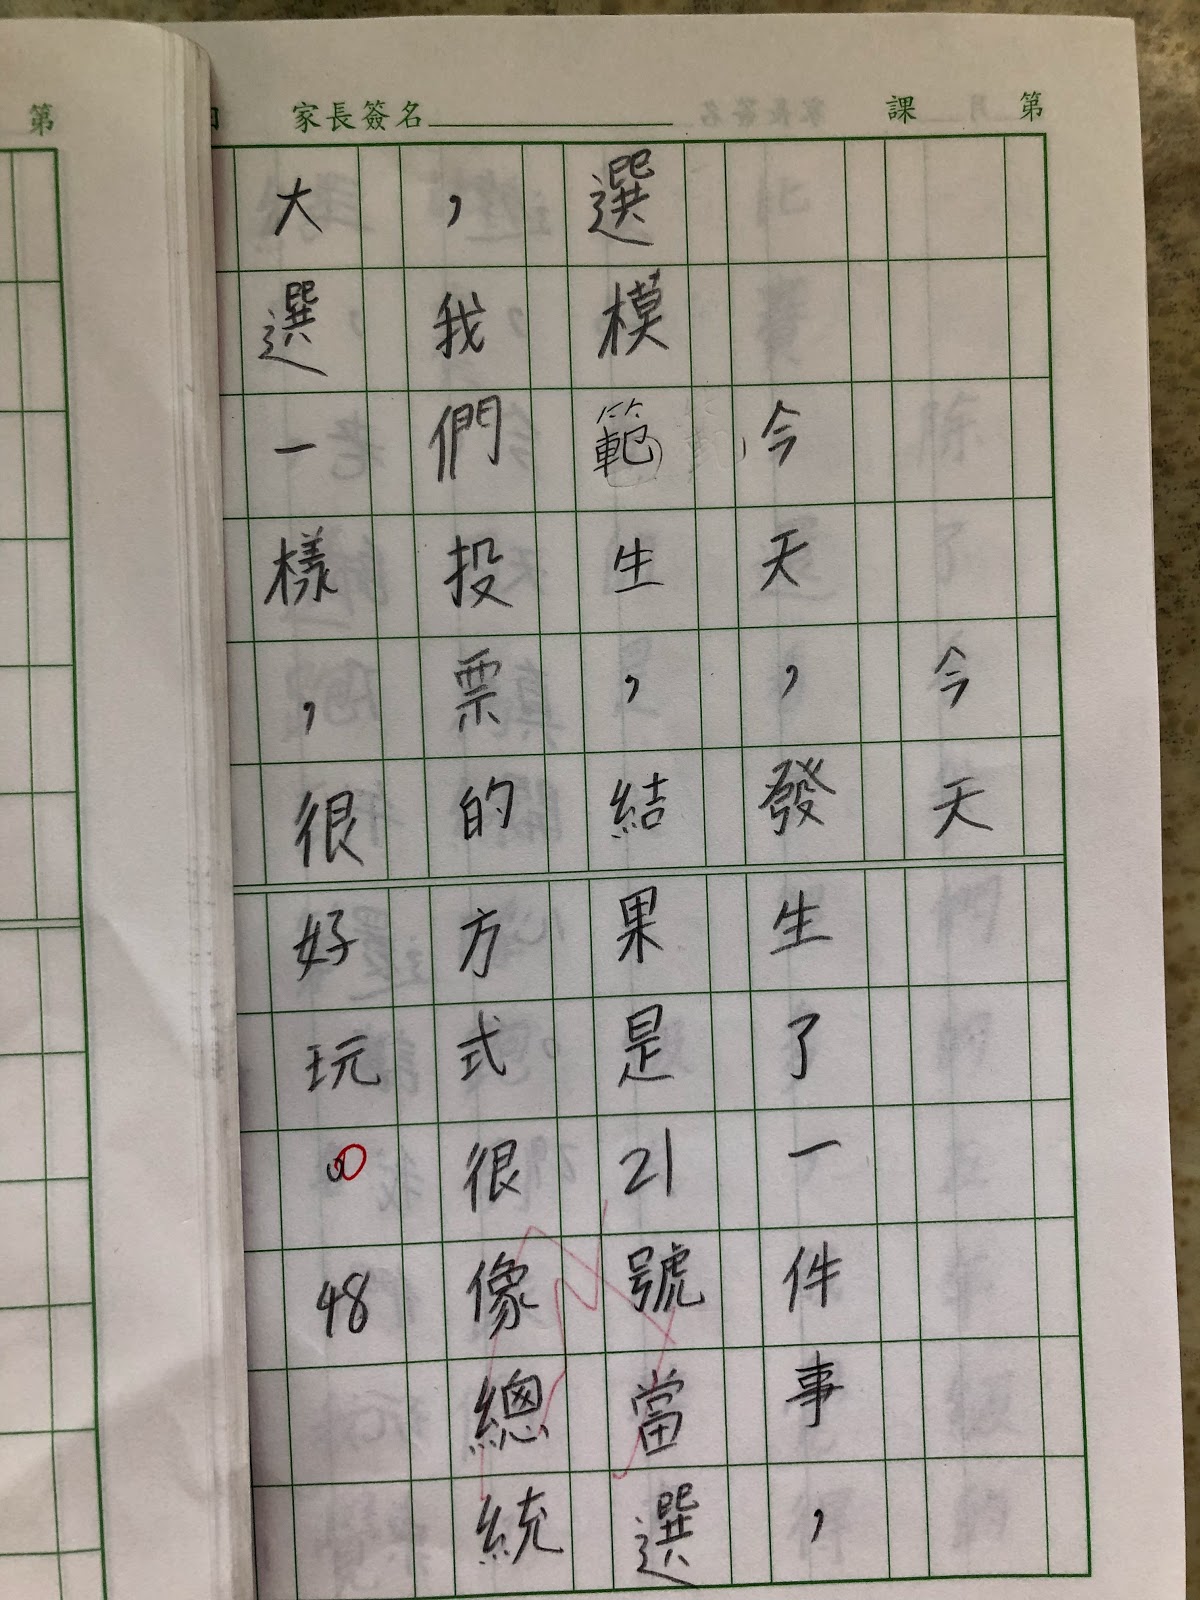 第　課
家長簽名
第
今天
今天，發生了一件事，
選模範生，結果是21號當選
，我們投票的方式很像總統
大選一樣，很好玩。48